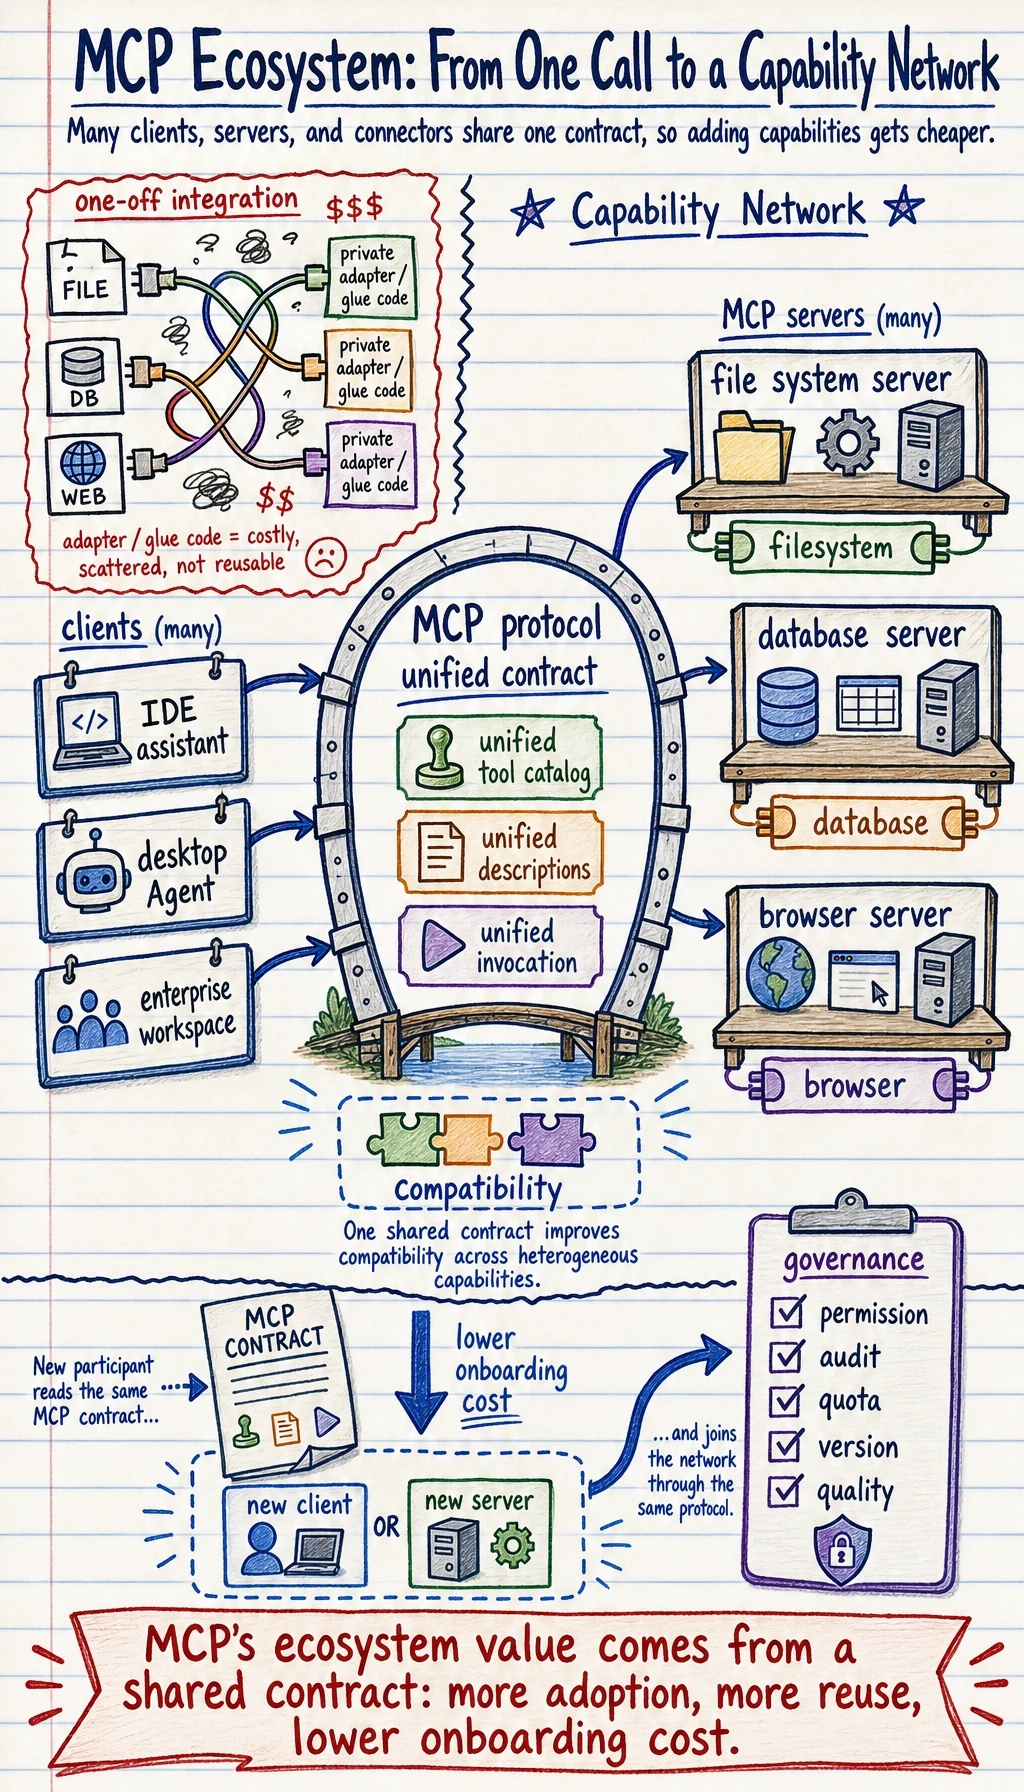 MCP Ecosystem: From One Call to a Capability Network
Many clients, servers, and connectors share one contract, so adding capabilities gets cheaper.
one-off integration $$$
FILE
DB
WEB
private
adapter /
glue code
private
adapter /
glue code
private
adapter /
glue code
? ? ?
$$
adapter / glue code = costly,
scattered, not reusable
Capability Network
MCP servers (many)
file system server
filesystem
database server
database
browser server
browser
clients (many)
</>
IDE
assistant
desktop
Agent
enterprise
workspace
MCP protocol
unified contract
unified
tool catalog
unified
descriptions
unified
invocation
Compatibility
One shared contract improves
compatibility across heterogeneous
capabilities.
New participant
reads the same
MCP contract...
MCP
CONTRACT
lower
onboarding
cost
new client
OR
new server
...and joins
the network
through the
same protocol.
governance
permission
audit
quota
version
quality
MCP's ecosystem value comes from a
shared contract: more adoption, more reuse,
lower onboarding cost.